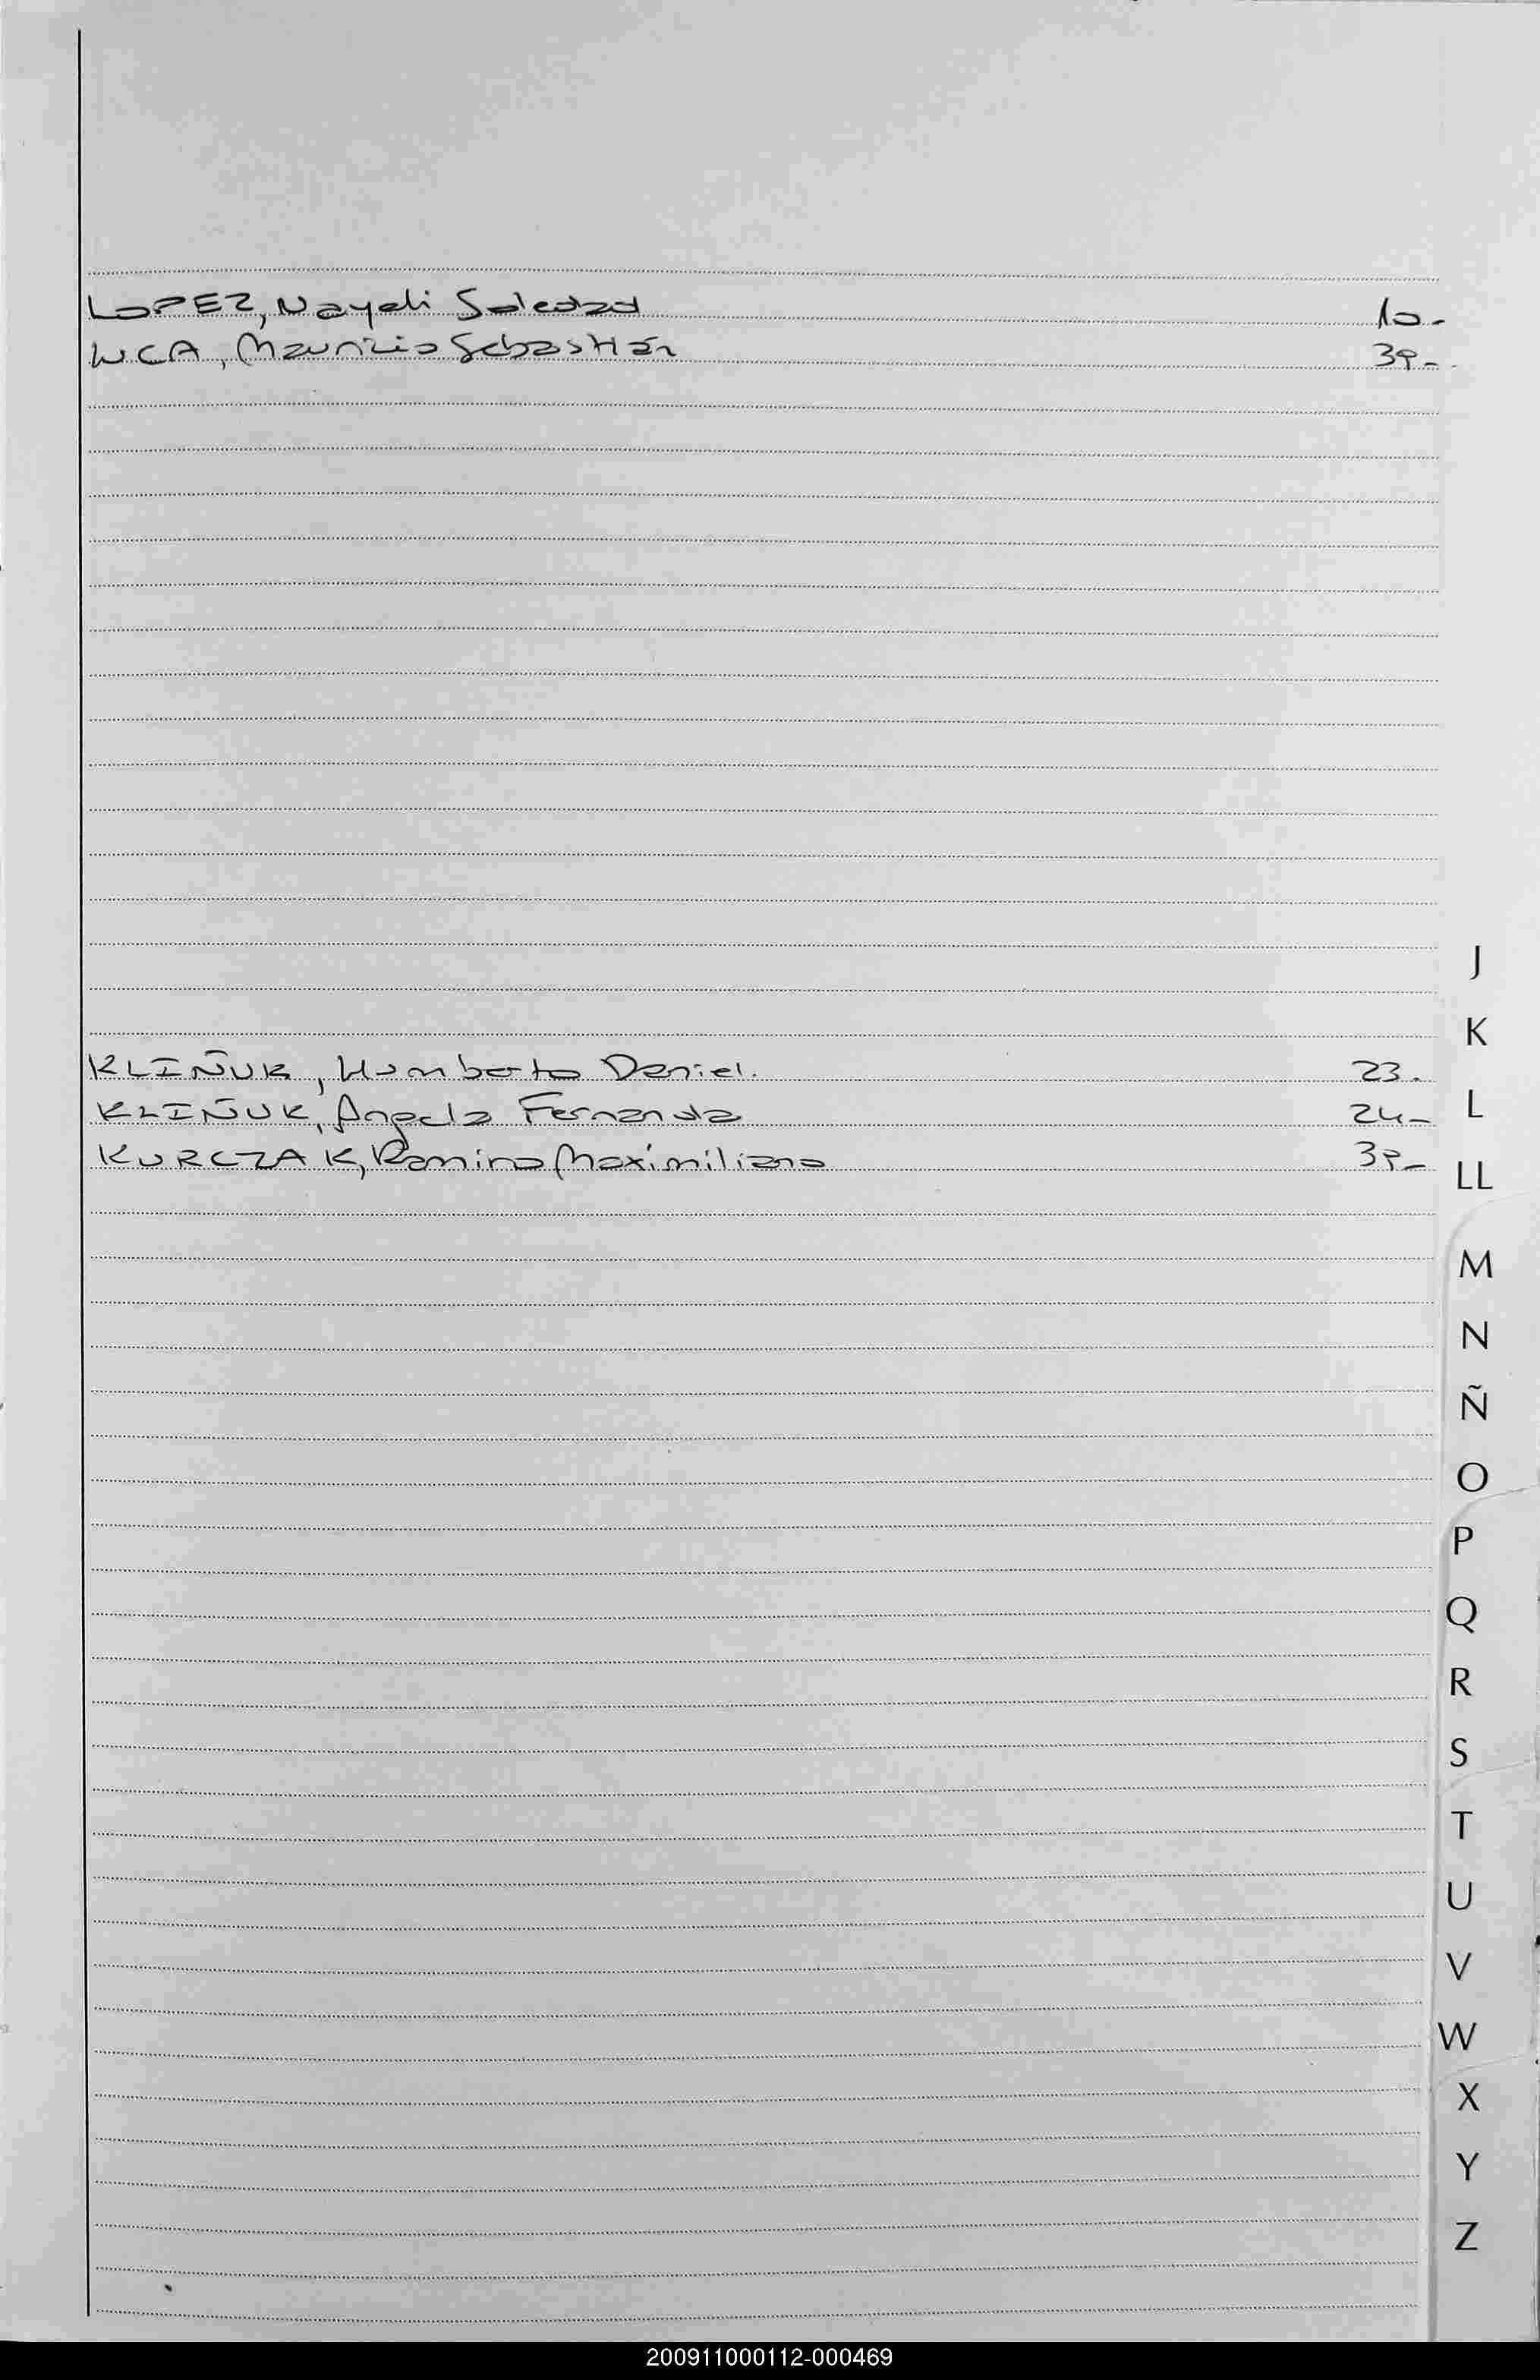 LOPEZ, Nayeli Soledad 10-
LUCA, Mauricio Sebastián 39-
J
K
KLIÑUK, Humberto Daniel. 23.
KLIÑUK, Angela Fernanda 24-
L
KURCZAK, Ramiro Maximiliano 39-
LL
M
N
Ñ
O
P
Q
R
S
T
U
V
W
X
Y
Z
200911000112-000469